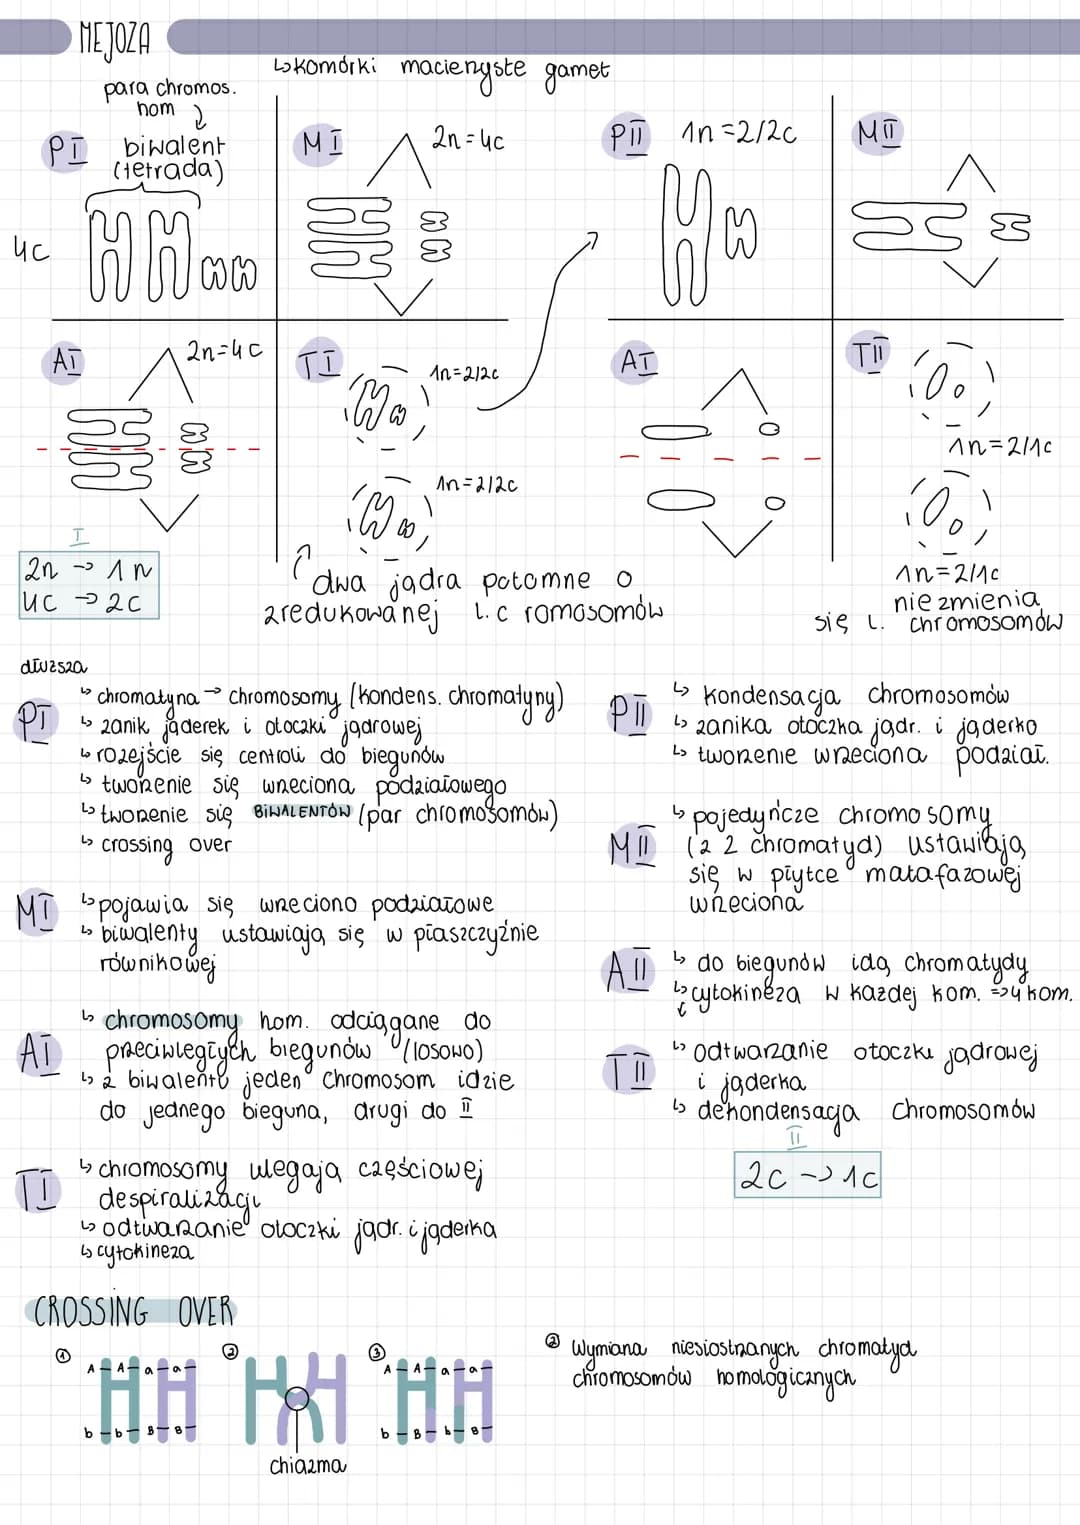 MEJOZA
↳komórki macierzyste gamet
para chromos.
hom
PI biwalent
(tetrada)
4c
MI 2n=4c
PII 1n=2/2c
MII
AI 2n=4c
TI 1n=2/2c
1n=2/2c
AI
TII
1n=2/1c
1n=2/1c
nie zmienia
się l. chromosomów
I
2n → 1n
4c → 2c
dwa jądra potomne o
zredukowanej l. c romosomów
dłuższa
PI
↳ chromatyna → chromosomy (kondens. chromatyny)
↳ zanik jąderek i otoczki jądrowej
↳ rozejście się centroli do biegunów
↳ tworzenie się wrzeciona podziałowego
↳ tworzenie się BIWALENTÓW (par chromosomów)
↳ crossing over
MI
↳ pojawia się wrzeciono podziałowe
↳ biwalenty ustawiają się w płaszczyźnie
równikowej
AI
↳ chromosomy hom. odciągane do
przeciwległych biegunów (losowo)
↳ z biwalentu jeden chromosom idzie
do jednego bieguna, drugi do II
TI
↳ chromosomy ulegają częściowej
despiralizacji
↳ odtwarzanie otoczki jądr. i jąderka
↳ cytokineza
PII
↳ kondensacja chromosomów
↳ zanika otoczka jądr. i jąderko
↳ tworzenie wrzeciona podział.
MII
↳ pojedyńcze chromosomy
(z 2 chromatyd) ustawiają
się w płytce matafazowej
wrzeciona
AII
↳ do biegunów idą chromatydy
↳ cytokineza w każdej kom. =>4 kom.
TII
↳ odtwarzanie otoczki jądrowej
i jąderka
↳ dekondensacja chromosomów
II
2c → 1c
CROSSING OVER
① A A a a
b b B B
②
chiazma
③ A A a a
b B b B
② Wymiana niesiostrzanych chromatyd
chromosomów homologicznych